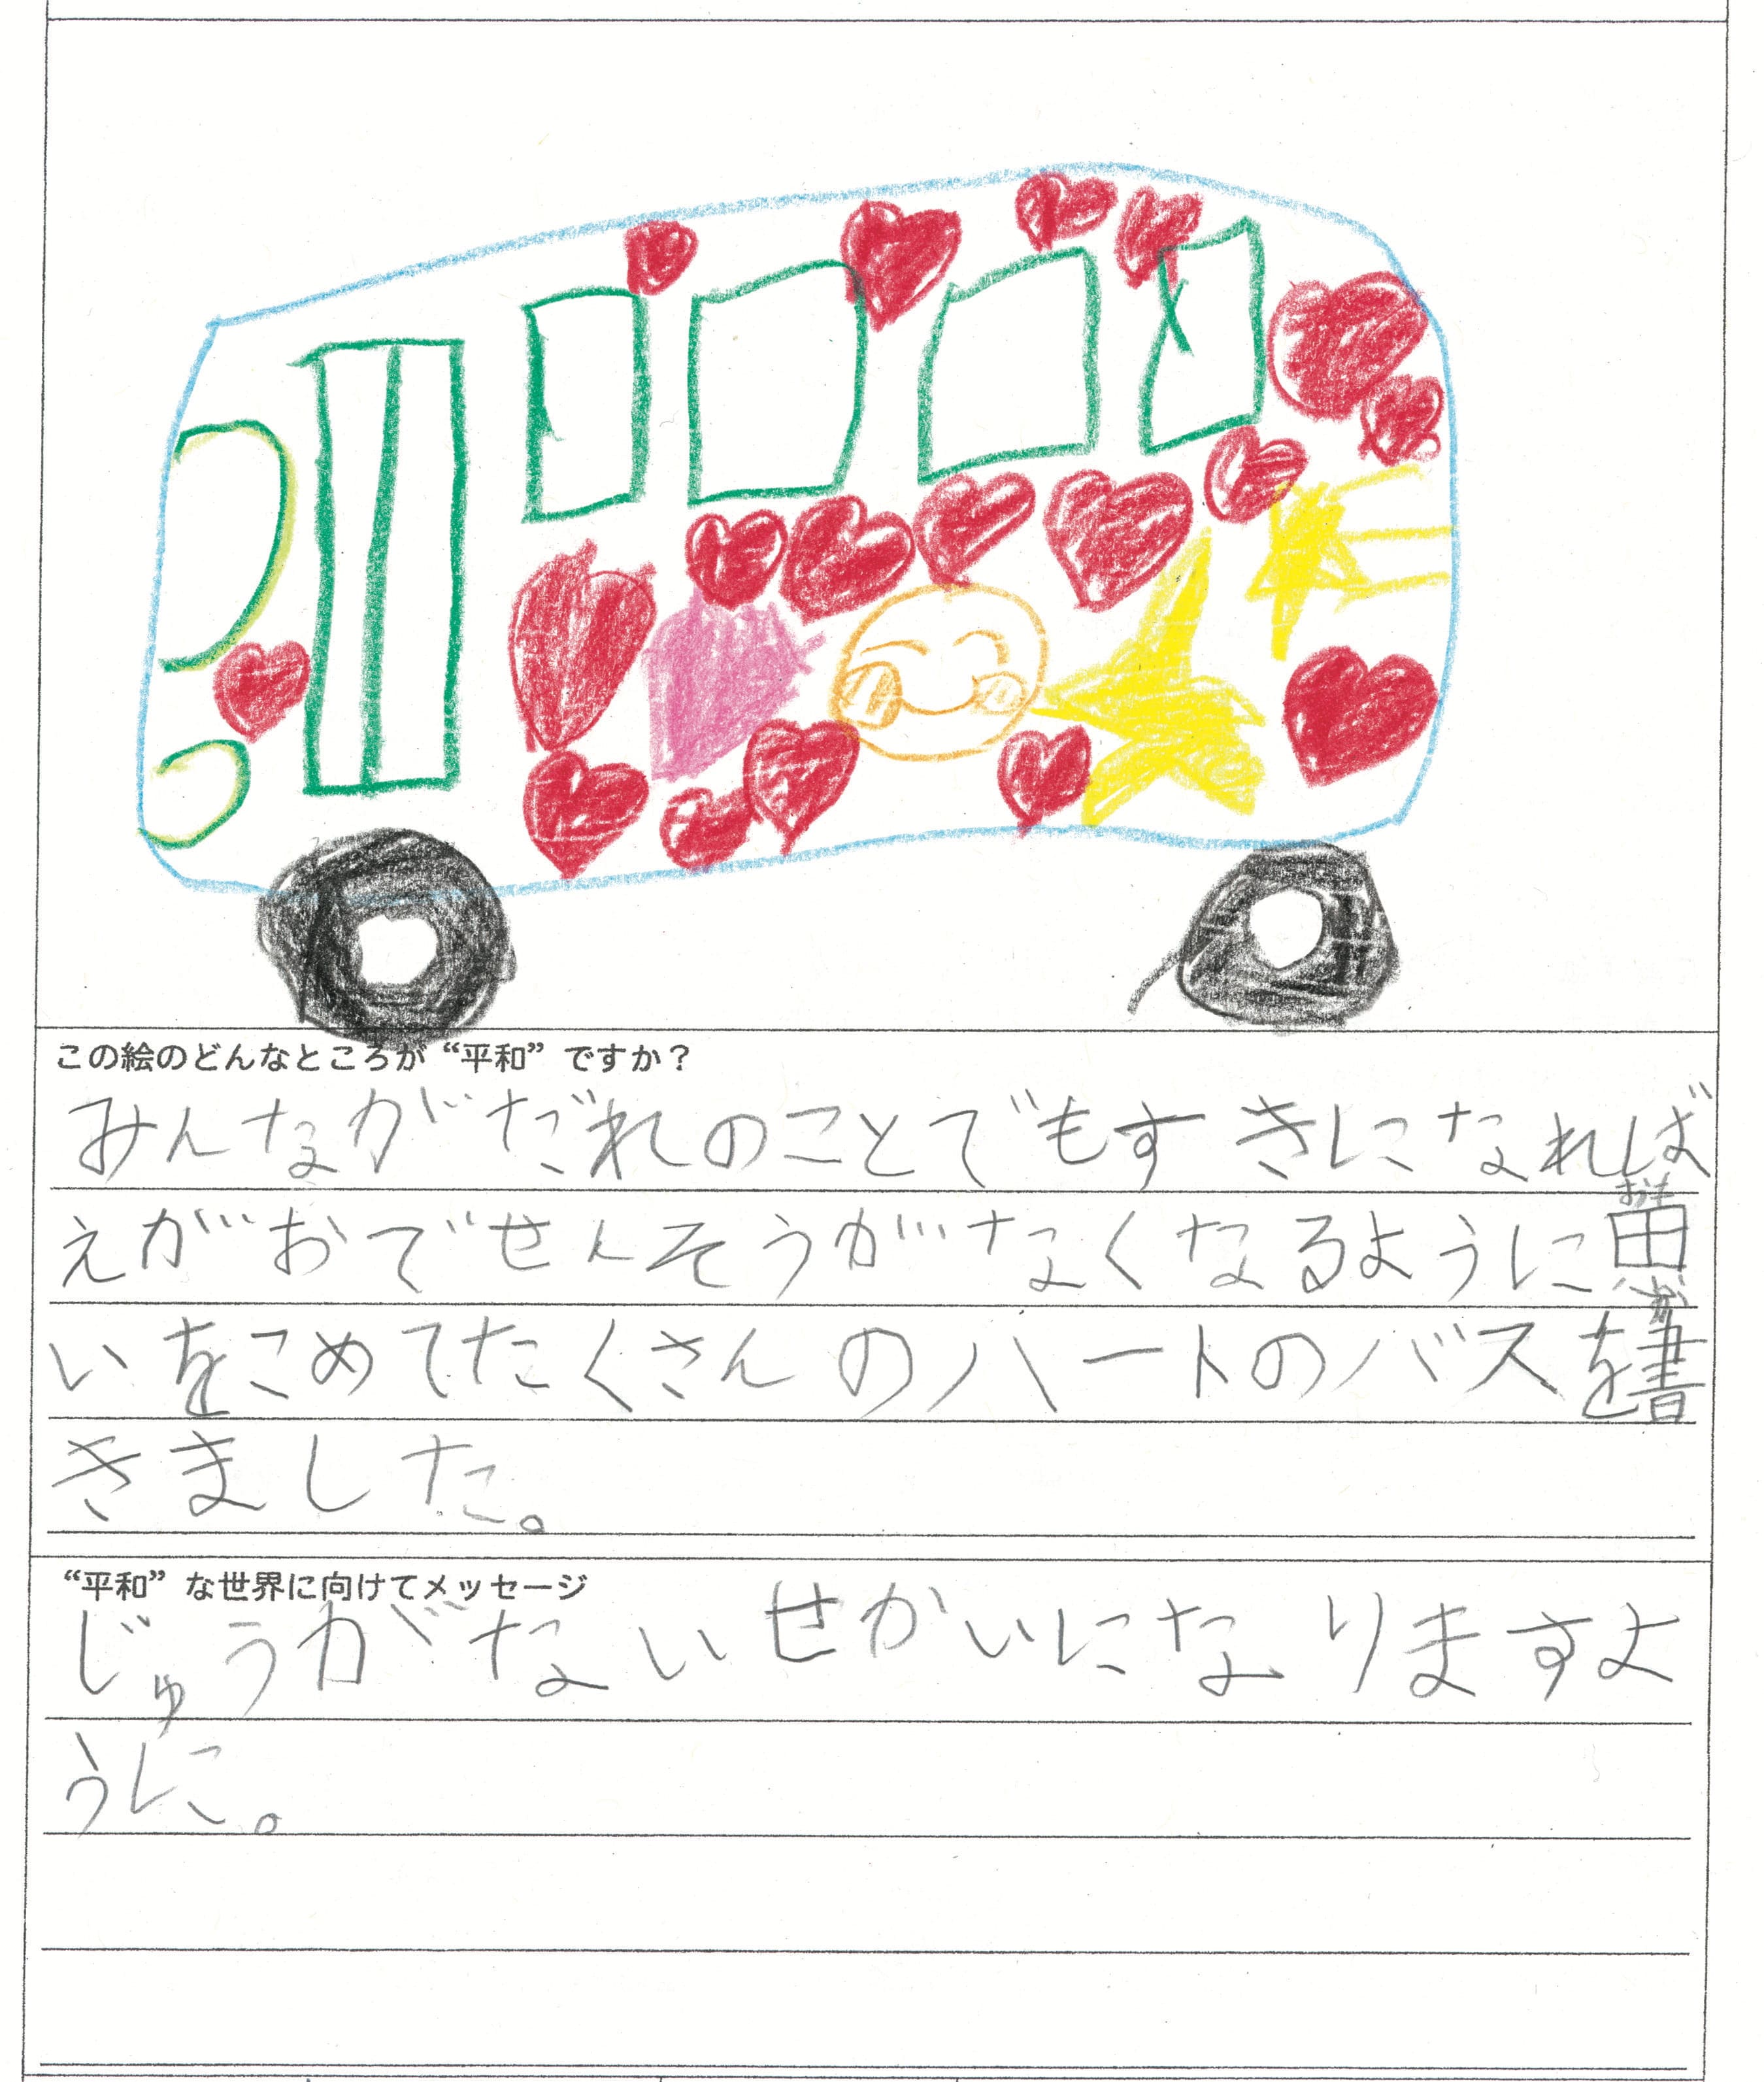 この絵のどんなところが“平和”ですか？
みんながだれのことでもすきになれば
えがおでせんそうがなくなるように思
いをこめてたくさんのハートのバスを書
きました。
“平和”な世界に向けてメッセージ
じゅうがないせかいになりますよ
うに。